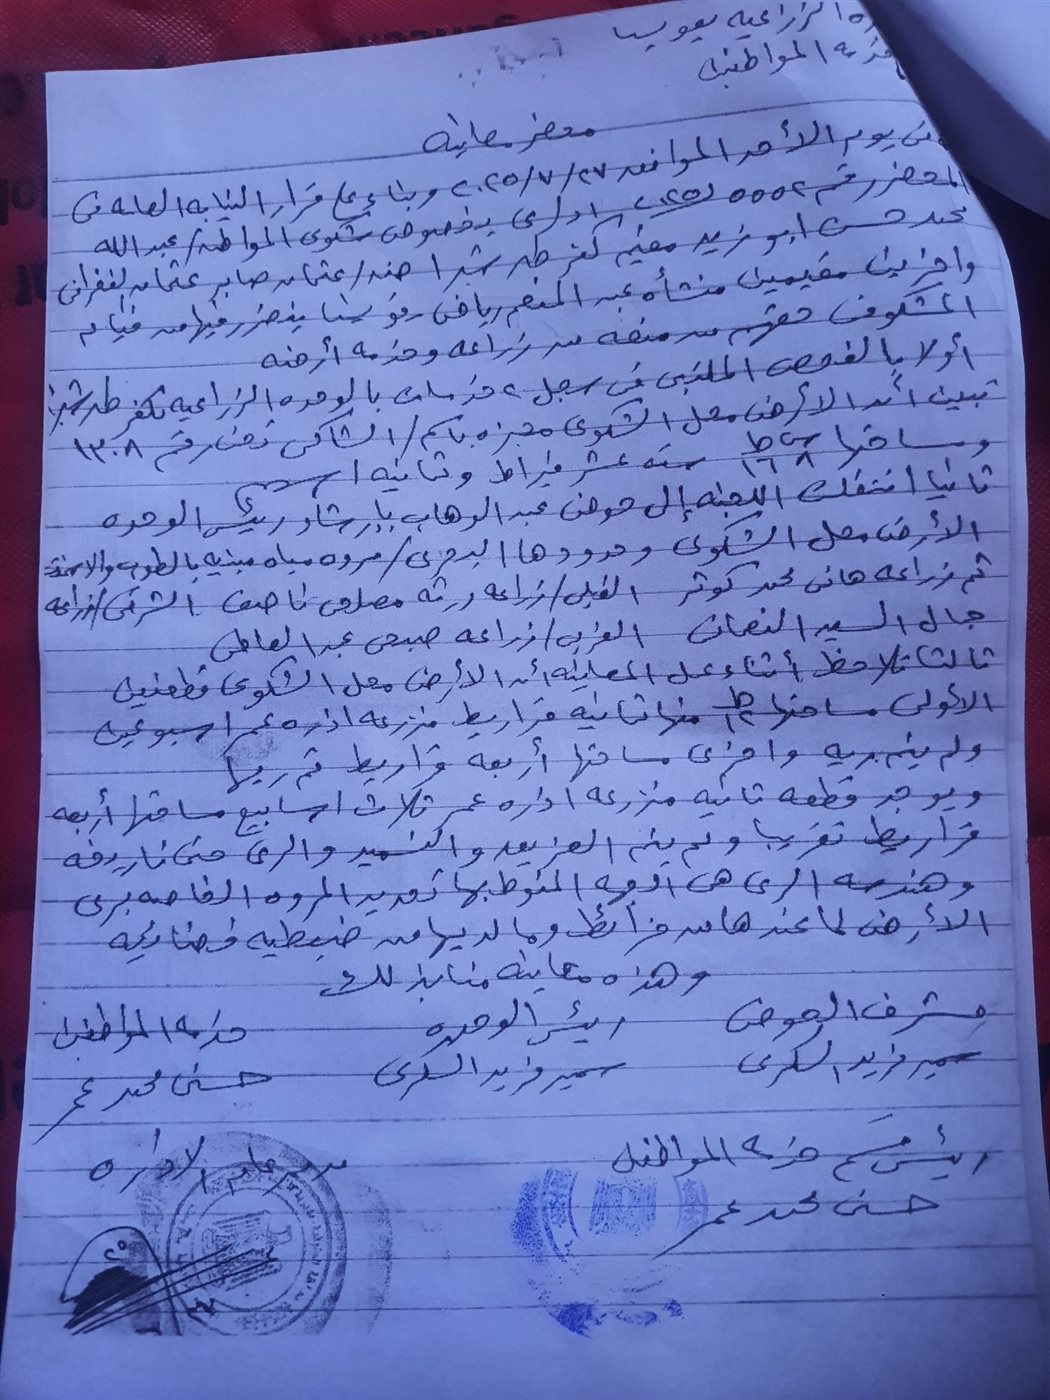 الزراعية بقويسنا
خدمة المواطنين
محضر معاينة
في يوم الأحد الموافق ٢٠٢٥/٧/٢٧ وبناء على قرار النيابة العامة في
المحضر رقم ٥٥٥٢ لسنة ٢٠٢٥ اداري بخصوص شكوى المواطن/ عبد الله
محمد حسن ابو زيد مقيم كفر طه شبرا ضد/ عثمان صابر عثمان
واخرين مقيمين منشأة عبد المنعم رياض قويسنا يتضرر فيها من قيام
المشكو في حقهم من منعه من زراعة وخدمة أرضه
أولا بالفحص المكتبي في سجل ٢ خدمات بالوحدة الزراعية بكفر طه شبرا
تبين أن الأرض محل الشكوى محيزه باسم/ الشاكي تحت رقم ١٣٠٨
ومساحتها ٨ س ١٦ ط ستة عشر قيراط وثمانية اسهم
ثانيا انتقلت اللجنة إلى حوض عبد الوهاب بإرشاد رئيس الوحدة
الأرض محل الشكوى وحدودها البحري/ مروه مياه مبنيه بالطوب والاسمنت
ثم زراعة هاني محمد كوثر القبلي/ زراعة ورثه مصلحي ناصف الشرقي/ زراعة
جمال السيد النعمان الغربي/ زراعة صبحي عبد العاطي
ثالثا تلاحظ أثناء عمل المعاينة أن الأرض محل الشكوى قطعتين
الأولى مساحتها ١٢ ط منها ثمانية قراريط منزرعة اذره عمر اسبوعين
ولم يتم ريه واخرى مساحتها أربعة قراريط تم ريها
ويوجد قطعة ثانية منزرعة اذره عمر ثلاث اسابيع مساحتها أربعة
قراريط تقريبا ولم يتم العزيق والتسميد والري حتى تاريخه
وهندسة الري هي الجهة المنوط بها تحديد المروه الخاصة بري
الأرض لما عندها من خرائط وما لديها من ضبطية قضائية
وهذه معاينة منا بذلك
مشرف الحوض رئيس الوحدة خدمة المواطنين
سمير فريد السكري سمير فريد السكري حسني محمد عمر
رئيس قسم خدمة المواطنين مدير عام الادارة
حسني محمد عمر